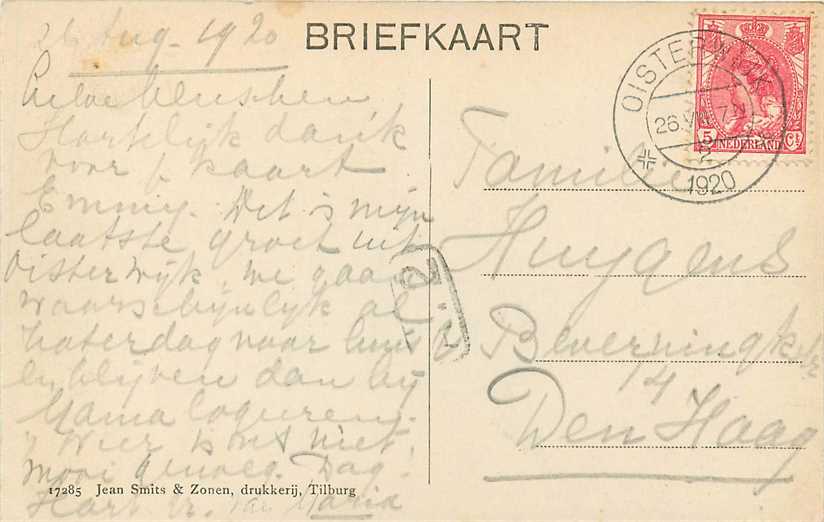 26 Aug. 1920
BRIEFKAART
Lieve Menschen
Hartelijk dank
voor j. kaart
Emmy. Dit is mijn
laatste groet uit
Oisterwijk, we gaan
waarschijnlijk al
Zaterdag naar huis
en blijven dan bij
Mama logeeren.
't Weer is ons niet
mooi genoeg. Dag.
Hart. gr. van Maria
OISTERWIJK
26.VIII 7-
2
1920
5 NEDERLAND Ct
Familie
Huygens
Beverningkstr
14
Den Haag
2
17285 Jean Smits & Zonen, drukkerij, Tilburg